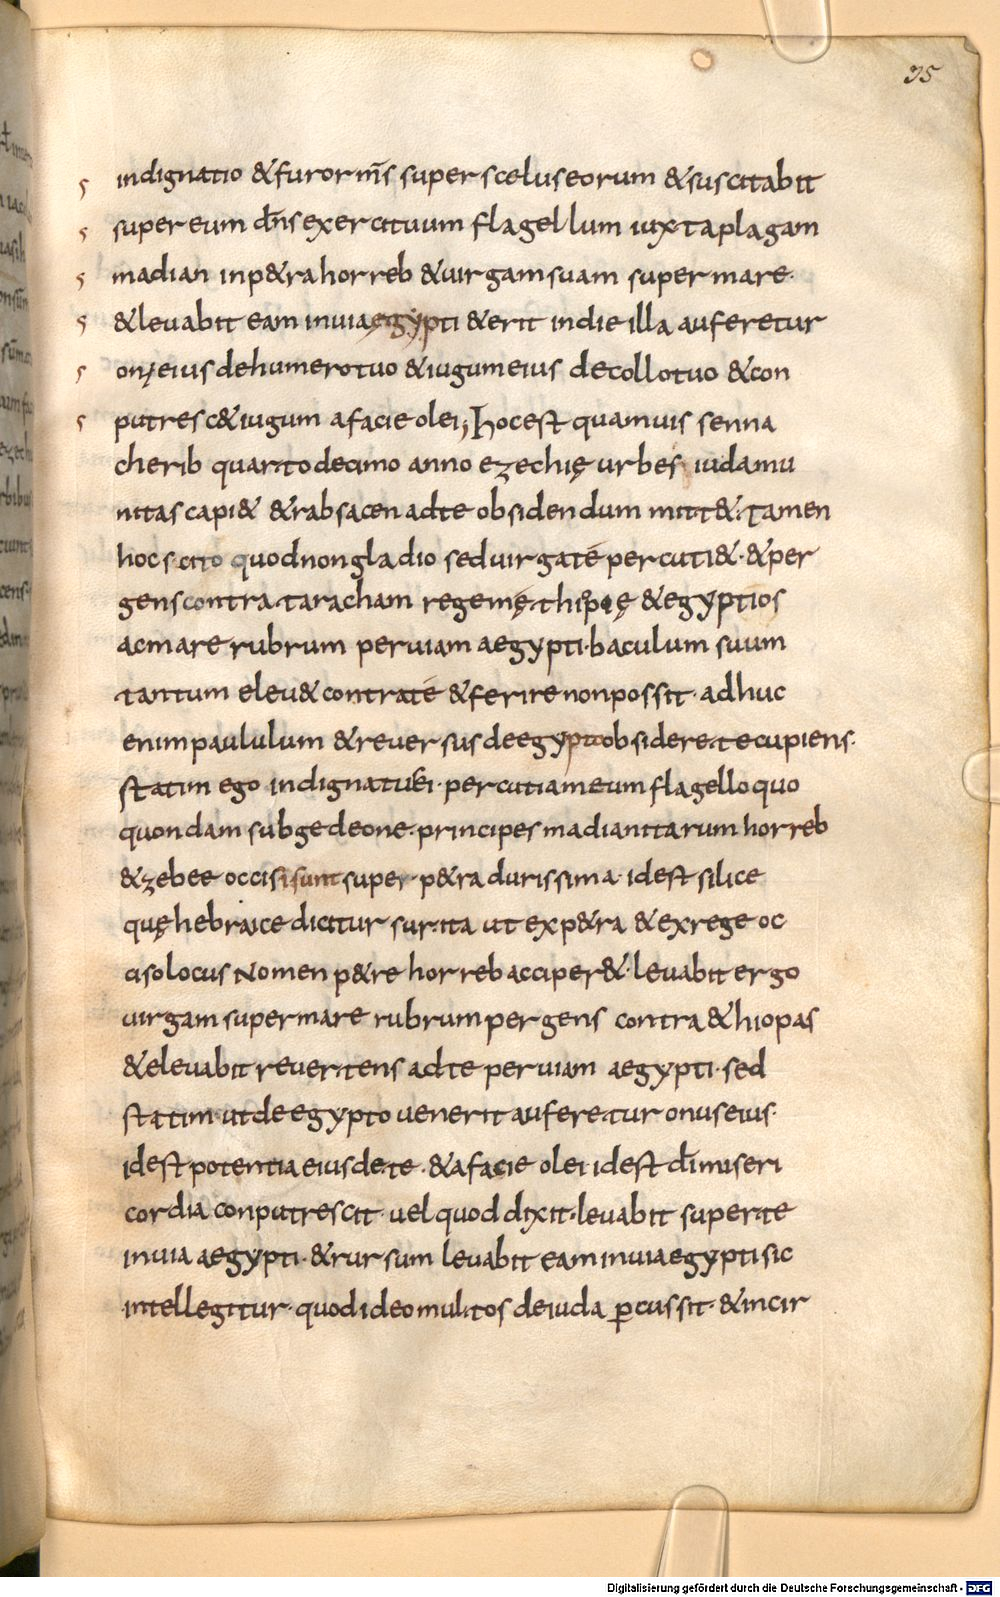 95
indignatio & furor m̄s super scelus eorum & suscitabit
super eum dn̄s exercituum flagellum iuxta plagam
madian in p&ra horreb & uirgam suam super mare·
& leuabit eam in uia ęgypti & erit in die illa auferetur
onꝰ eius de humero tuo & iugum eius de collo tuo & con
putresc& iugum a facie olei; Hoc est quamuis senna
cherib quarto decimo anno ezechię urbes iudę mu
nitas capi& & rabsacen ad te obsidendum mitt&· Tamen
hoc scito quod non gladio sed uirga te percuti&· & per
gens contra taracham regem ęthiopię & egyptios
ac mare rubrum per uiam aegypti· baculum suum
tantum eleu& contra te & ferire non possit· adhuc
enim paululum & reuersus de egypto obsidere te cupiens·
statim ego indignatus ei· percutiam eum flagello quo
quondam sub gedeone· principes madianitarum horreb
& zebee occisi sunt super· p&ra durissima· id est silice
quę hebraice dicitur surita ut ex p&ra & ex rege oc
ciso locus Nomen p&re horreb acciper&· leuabit ergo
uirgam super mare rubrum pergens contra &hiopas
& eleuabit reuertens ad te per uiam aegypti· sed
statim ut de egypto uenerit auferetur onus eius·
id est potentia eius de te· & a facie olei id est dī miseri
cordia conputrescit· uel quod dixit· leuabit super te
in uia aegypti· & rursum leuabit eam in uia egypti sic
intellegitur· quod ideo multos de iuda ꝑcussit· & in cir
Digitalisierung gefördert durch die Deutsche Forschungsgemeinschaft - DFG